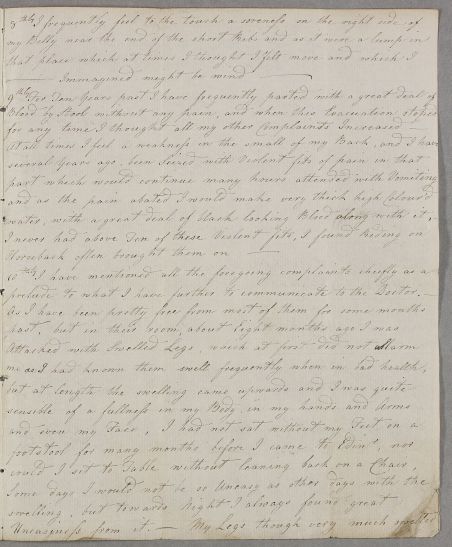 8thly I frequently feel to the touch a soreness on the right side of
my Belly near the end of the short Rib and as it were a lump in
that place which at times I thought I felt move and which I
Immagined might be wind
9thly For Ten Years past I have frequently parted with a great deal of
Blood by Stool without any pain, and when this Evacuation stoped
for any time I thought all my other Complaints Increased —
At all times I feel a weakness in the small of my Back, and I have
several Years ago, been seized with Violent fits of pain in that
part which would continue many hours attended with Vomiting
and as the pain abated I would make very thick high Colour'd
water, with a great deal of black looking Blood along with it,
I never had above Ten of these Violent fits, I found Riding on
Horseback often brought them on —
10thly I have mentioned all the foregoing complaints chiefly as a
prelude to what I have further to communicate to the Doctor. —
As I have been pretty free from most of them for some months
past, but in their room, about Eight months ago I was
Attacked with Swelled Legs, which at first did not allarm
me as I had known them swell frequently when in bad health,
but at length the swelling came upwards and I was quite
sensible of a fullness in my Body, in my hands and Arms
and even my Face, I had not sat without my Feet on a
footstool for many months before I came to Edinr, nor
could I sit to Table without leaning back on a Chair,
Some days I would not be so Uneasy as other days with the
swelling, but towards Night I always found great
Uneasiness from it. — My Legs though very much swelled